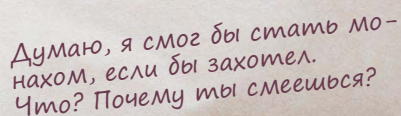 Думаю, я смог бы стать мо-
нахом, если бы захотел.
Что? Почему ты смеешься?